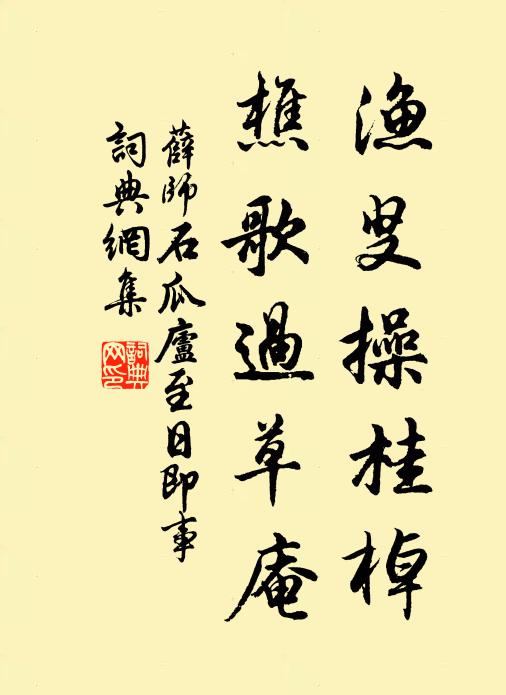 漁叟操桂棹
樵歌過草庵
薛師石瓜廬至日即事
詞典網集
詞典网印